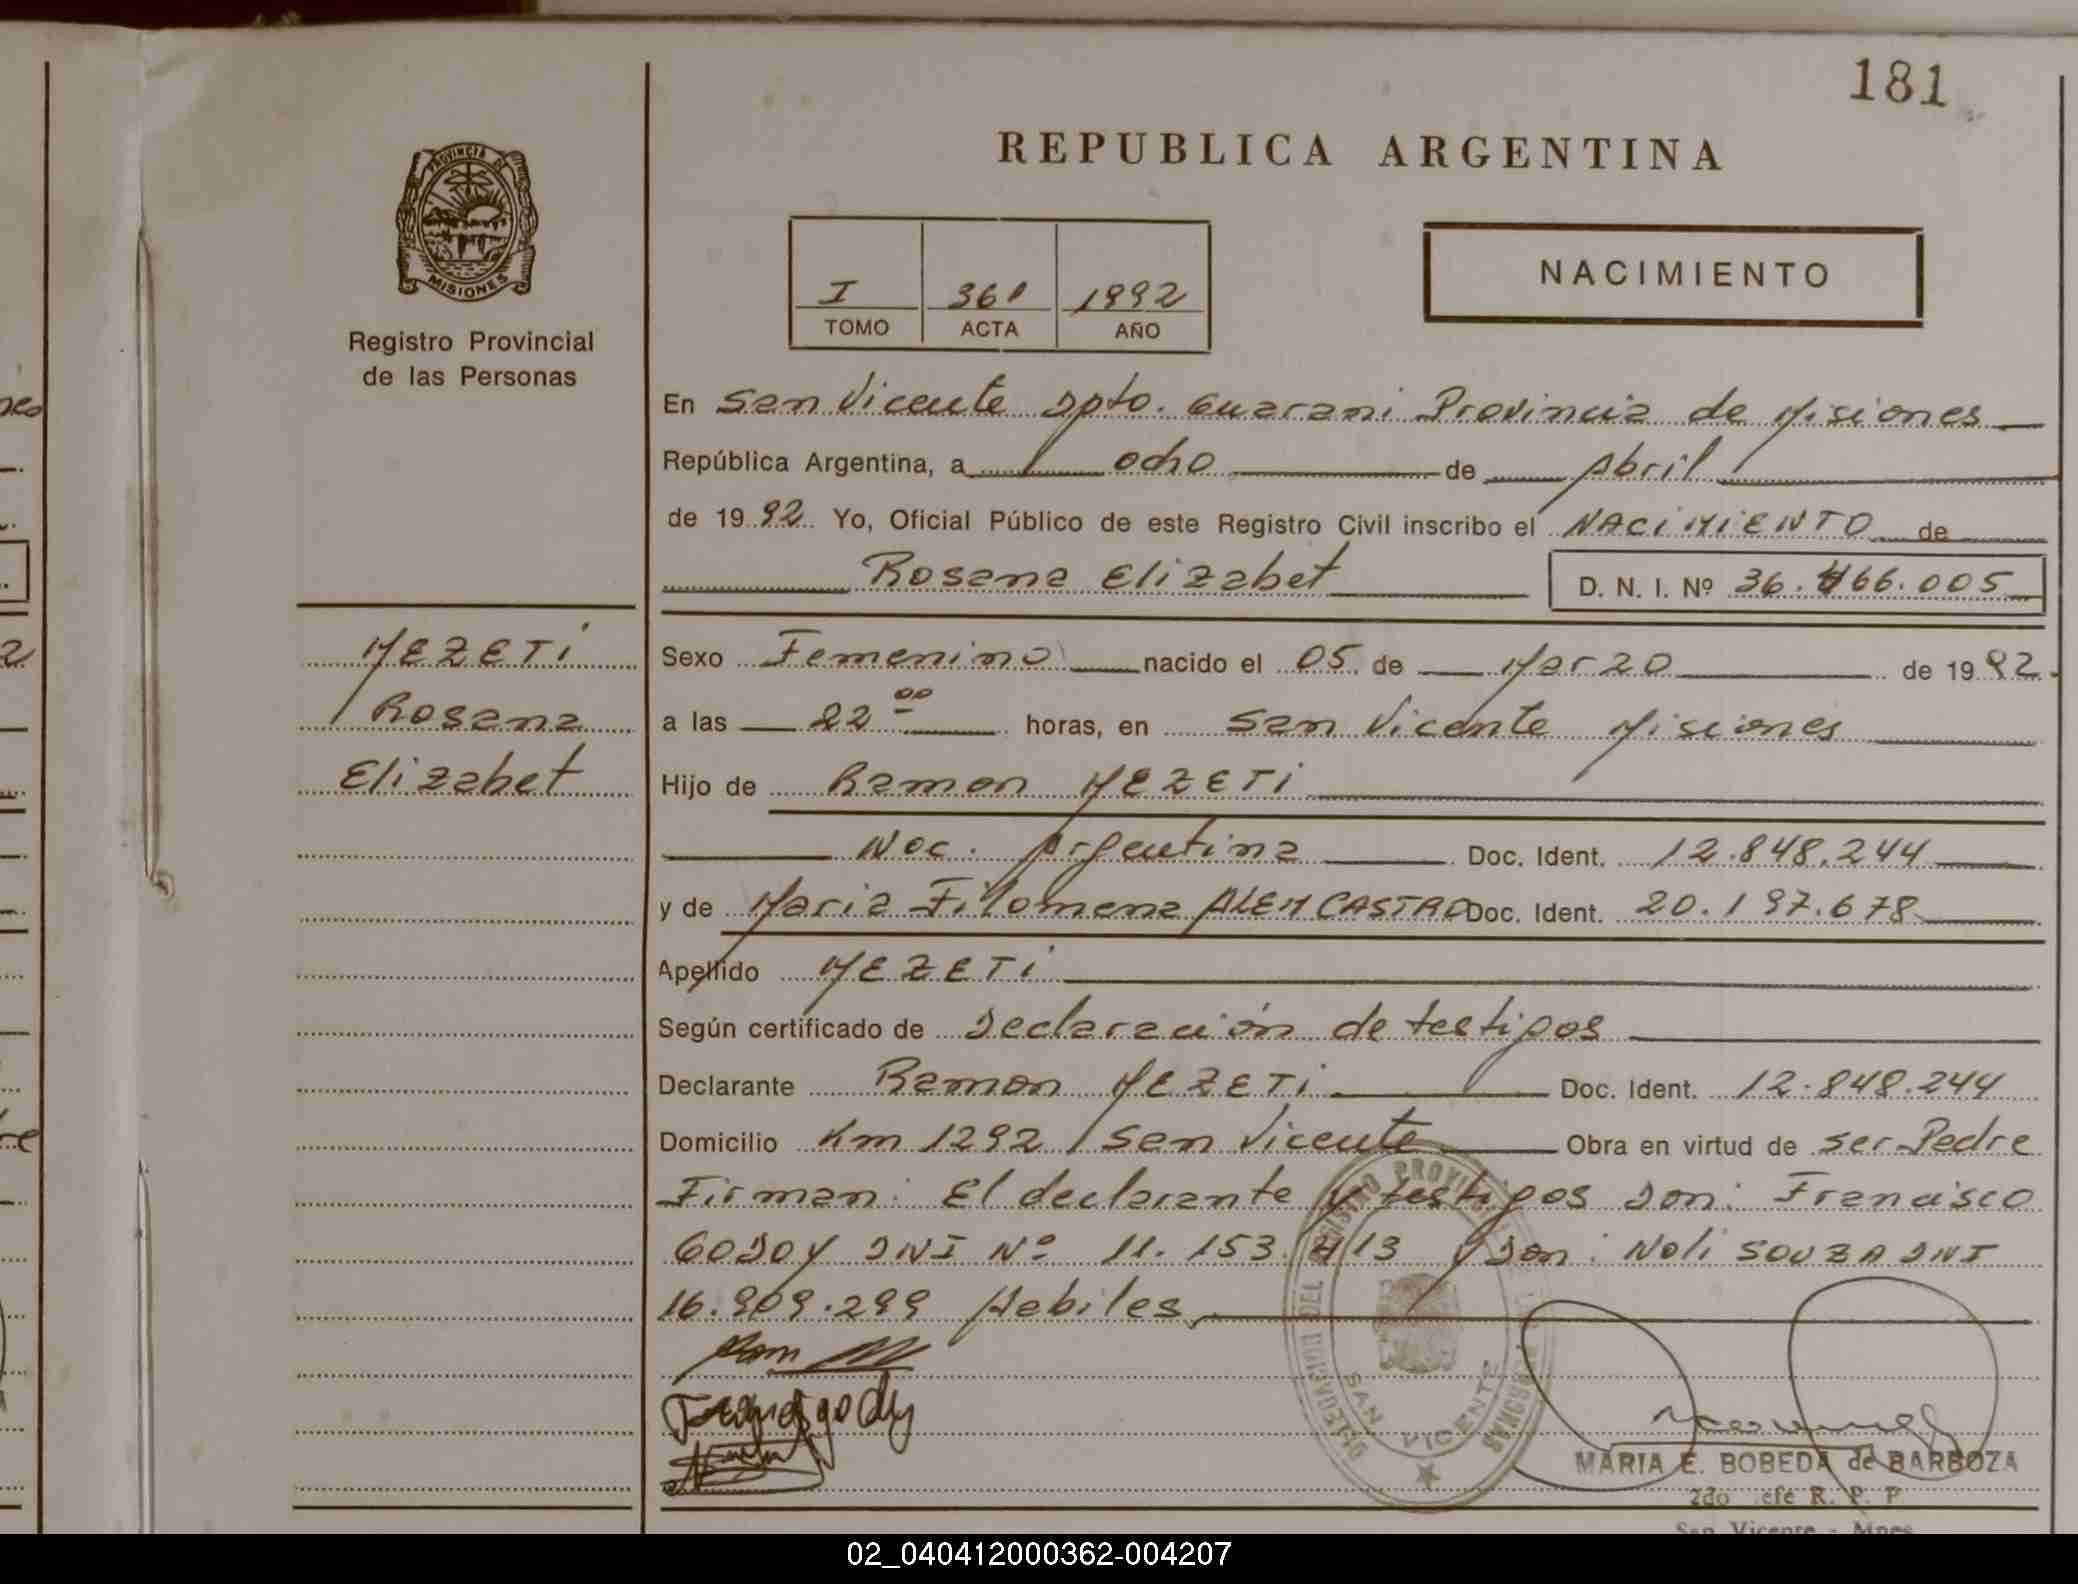 181
REPUBLICA ARGENTINA
PROVINCIA DE
MISIONES
Registro Provincial
de las Personas
I 361 1992
TOMO ACTA AÑO
NACIMIENTO
En San Vicente Dpto. Guarani Provincia de Misiones
República Argentina, a ocho de Abril
de 1992 Yo, Oficial Público de este Registro Civil inscribo el NACIMIENTO de
Rosana Elizabet D. N. I. Nº 36.466.005
MEZETI
Rosana
Elizabet
Sexo Femenino nacido el 05 de Marzo de 1992
a las 22 00 horas, en San Vicente Misiones
Hijo de Ramon MEZETI
Nac. Argentina Doc. Ident. 12.848.244
y de Maria Filomena ALEM CASTRO Doc. Ident. 20.197.678
Apellido MEZETI
Según certificado de Declaración de testigos
Declarante Ramon MEZETI Doc. Ident. 12.848.244
Domicilio Km 1292 San Vicente Obra en virtud de ser Padre
Firman: El declarante y testigos Don: Francisco
GODOY DNI Nº 11.153.413 y Don: Noli SOUZA DNI
16.909.299 Habiles
DELEGACION DEL REGISTRO PROVINCIAL DE LAS PERSONAS
SAN VICENTE
MARIA E. BOBEDA de BARBOZA
2do efe R. P. P
San Vicente - Mnes
02_040412000362-004207